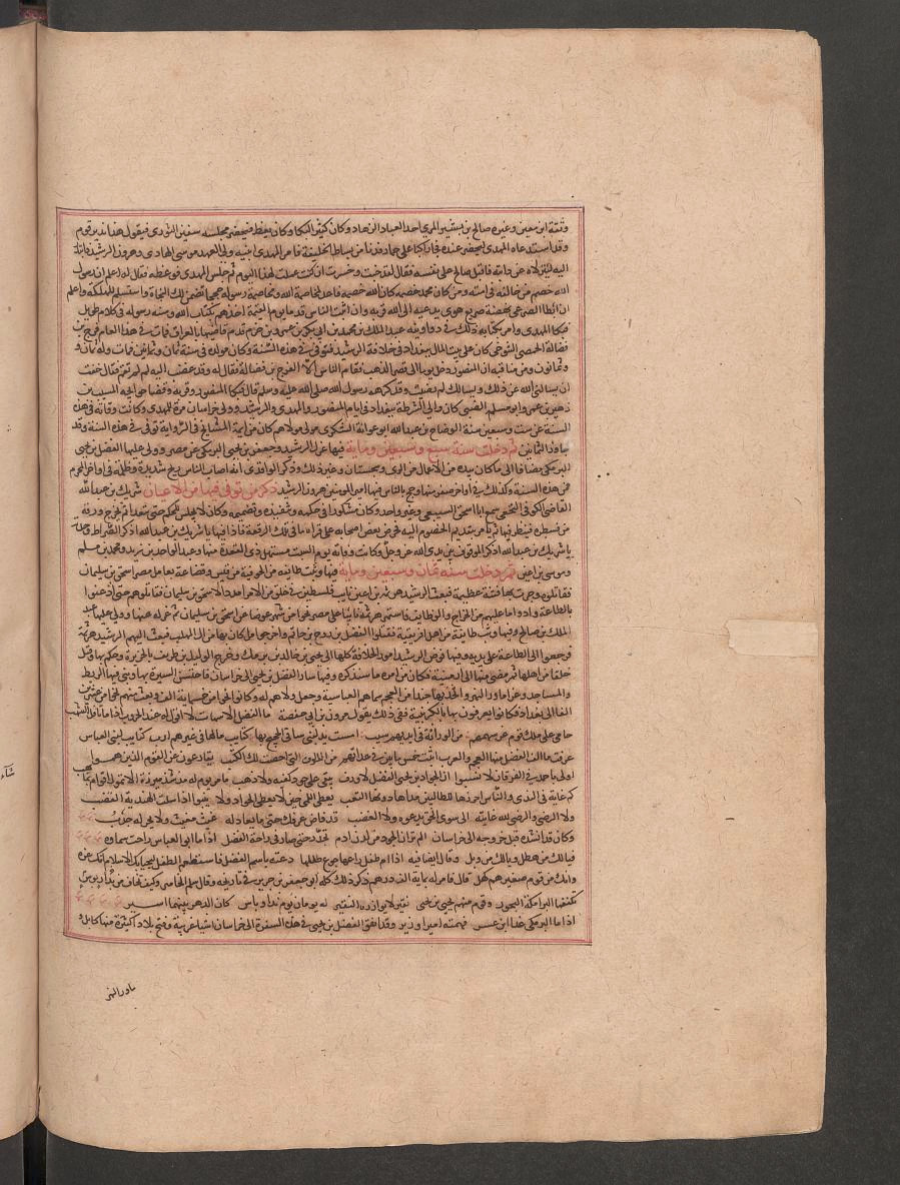 وثقه ابن معين وغيره صالح بن بشير المري احد العباد الزهاد وكان كثير البكا وكان يعظ فيحضر مجلسه سفين الثوري فيقول هذا نذير قوم
وقد استدعاه المهدي ليحضر عنده فجا راكبا على حمار فدنا من بساط الخليفة فامر المهدي ابنيه ولي العهد موسى الهادي وهرون الرشيد
اليه لينزلاه عن دابته فاقبل صالح على نفسه فقال لقد خبت وخسرت ان كنت عملت لهذا اليوم ثم جلس الى المهدي فوعظه فقال له اعلم ان رسول
الله خصم من خالفه في امته ومن كان محمد خصمه كان الله خصمه فاعد لمخاصمة الله ومخاصمة رسوله حججا تضمن لك النجاة واستسلم للهلكة واعلم
ان ابطا الصرعى نهضة صريع هوى يدعيه الى الله قربة وان اثبت الناس قدما يوم القيمة اخذهم بكتاب الله وسنة رسوله في كلام طويل
فبكا المهدي وامر بكتابة ذلك في دواوينه عبد الملك بن محمد بن ابي بكر بن عمرو بن حزم قدم قاضيا بالعراق فمات في هذا العام فرج بن
فضالة الحمصي التنوخي كان على بيت المال ببغداد في خلافة الرشيد فتوفي في هذه السنة وكان مولده في سنة ثمان وثمانين فمات وله ثمان و
وثمانون ومن مناقبه ان المنصور دخل يوما الى قصر الذهب فقام الناس الا الفرج بن فضالة فقال له وقد غضب اليه لم لم تقم فقال خفت
ان يسالني الله عن ذلك ويسالك لم رضيت وقد كرهه رسول الله صلى الله عليه وسلم قال فبكا المنصور وقربه وقضا حوايجه المسيب بن
زهير بن عمرو ابو مسلم الضبي كان والي الشرطة ببغداد في ايام المنصور والمهدي والرشيد وولي خراسان مرة للمهدي وكانت وفاته في هذه
السنة عن ست وسبعين سنة الوضاح بن عبد الله ابو عوانة اليشكري مولاهم كان من ائمة المشايخ في الرواية توفي في هذه السنة وقد
جاوز الثمانين ثم دخلت سنة سبع وسبعين وماية فيها عزل الرشيد جعفر بن يحيى البرمكي عن مصر وولى عليها
البرمكي مضافا الى ما كان بيده من الاعمال من الري وسجستان وغير ذلك وذكر الواقدي انه اصاب الناس ريح شديدة وظلمة في اواخر المحرم
من هذه السنة وكذلك في اواخر صفر منها وحج بالناس فيها امير المومنين هرون الرشيد ذكر من توفي فيها من الاعيان شريك بن عبد الله
القاضي الكوفي النخعي سمع ابا اسحق السبيعي وغير واحد وكان مشكورا في حكمه وتنفيذه وتصميمه وكان لا يجلس للحكم حتى يتغدا ثم يخرج ورقة
من قمطره فينظر فيها ثم يامر بتقديم الخصوم اليه فحرص بعض اصحابه على قراة ما في تلك الرقعة فاذا فيها يا شريك بن عبد الله اذكر الصراط وحدته
يا شريك بن عبد الله اذكر الموقف بين يدي الله عز وجل وكانت وفاته يوم السبت مستهل ذي القعدة منها وعبد الواحد بن زيد ومحمد بن مسلم
وموسى بن اعين ثم دخلت سنة ثمان وسبعين وماية فيها وثبت طايفة من الحوفية من قيس وقضاعة بعامل مصر اسحق بن سليمان
فقاتلوه وجرت بها فتنة عظيمة فبعث الرشيد هرثمة بن اعين نايب فلسطين في خلق من الامرا مددا لاسحق بن سليمان فقاتلوهم حتى اذعنوا
بالطاعة وادوا ما عليهم من الخراج والوظايف فاستمر هرثمة نايبا على مصر نحوا من شهر عوضا عن اسحق بن سليمان ثم عزله عنها وولى عليها عبد
الملك بن صالح وفيها وثب طايفة من اهل افريقية فقتلوا الفضل بن روح بن حاتم واخرجوا من كان بها من ال المهلب فبعث اليهم الرشيد هرثمة
فرجعوا الى الطاعة على يديه وفيها فوض الرشيد امور الخلافة كلها الى يحيى بن خالد بن برمك وخرج الوليد بن طريف بالجزيرة وحكم بها وقتل
خلقا من اهلها ثم مضى منها الى ارمينية فكان من امره ما سنذكره وفيها سار الفضل بن يحيى الى خراسان فاحسن السيرة بها وبنى فيها الربط
والمساجد وغزا ما ورا النهر واتخذ بها جندا من العجم سماهم العباسية وجعل ولاهم له وكانوا نحوا من خمسماية الف وبعث منهم نحوا من عشرين
الفا الى بغداد فكانوا يعرفون بها بالكرنبية ففي ذلك يقول مروان بن ابي حفصة ما الفضل الا شهاب لا افول له عند الحروب اذا ما تافل الشهب
حامي على ملك قوم غر سهمهم من الوراثة في ايديهم سبب امست يد لبني ساقي الحجيج بها كتايب ما لها في غيرهم ارب كتايب لبني العباس
عرفت ما الف الفضل منها العجم والعرب اثبت خمس ماين في عدادهم من الالوف التي احصت لك الكتب يقارعون عن القوم الذين هموا
اولى باحمد في الفرقان ان نسبوا ان الجواد بن يحيى الفضل لا ورق يبقى على جود كفيه ولا ذهب ما مر يوم له مذ شد ميزره الا تمول اقوام بما يهب
كم غاية في الندى والباس احرزها للطالبين مداها دونها التعب يعطي اللهى حين لا يعطي الجواد ولا ينبو اذا سلت الهندية القضب
ولا الرضى والرضى لله غايته الى سوى الحق يدعوه ولا الغضب قد فاض عرفك حتى ما يعادله غيث مغيث ولا بحر له حدب
وكان قد انشده قبل خروجه الى خراسان الم تر ان الجود من لدن ادم تحدر حتى صار في راحة الفضل اذا ما ابو العباس راحت سماوه
فيا لك من هطل ويا لك من وبل وقال ايضا فيه اذا ام طفل راعها جوع طفلها دعته باسم الفضل فاستطعم الطفل ليحيا بك الاسلام انك عزه
وانك من قوم صغيرهم كهل قال فامر له بماية الف درهم ذكر ذلك كله ابو جعفر بن جرير في تاريخه وقال سلم الخاسر وكيف تخاف من بوس بدار
تكنفها البرامكة البحور وقوم منهم يحيى بن يحيى نفير لا يوازره النفير له يومان يوم ندا وباس كان الدهر بينهما اسير
اذا ما البرمكي غدا ابن عشر فهمته امير او وزير وقد اتفق الفضل بن يحيى في هذه السفرة الى خراسان اشيا غريبة وفتح بلادا كثيرة منها كابل و
ما ورا النهر